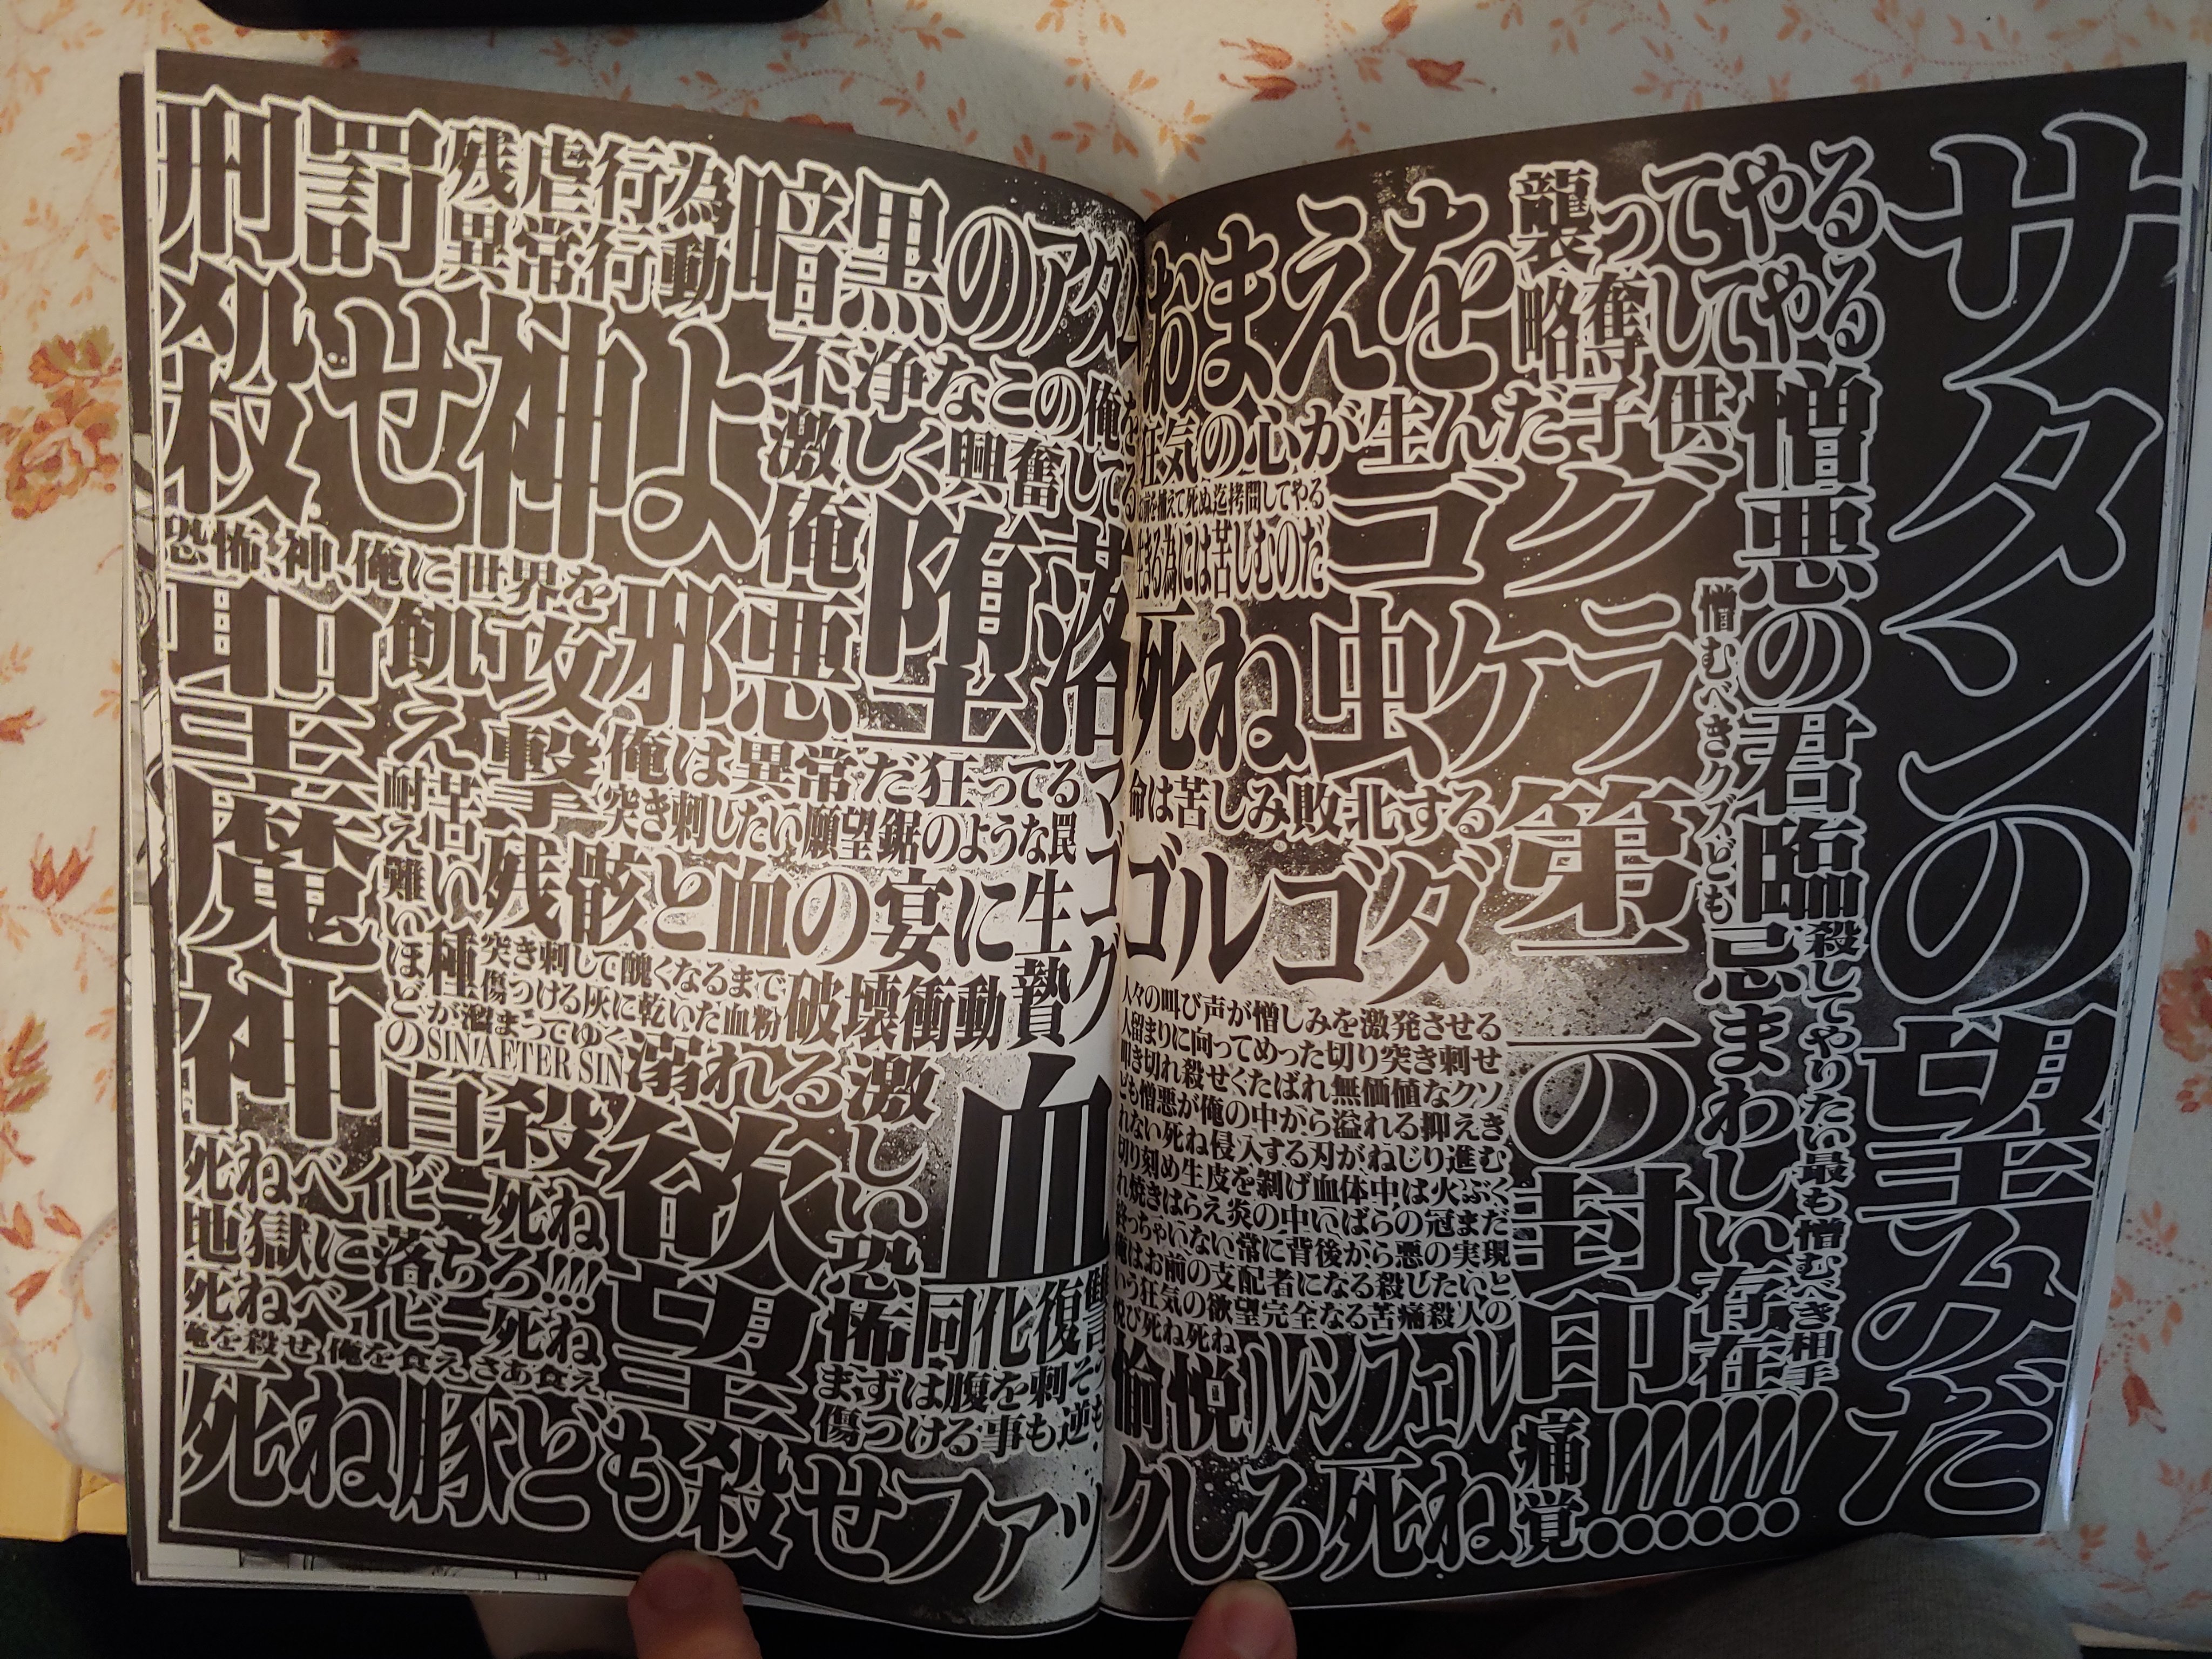 サタンの望みだ
襲ってやる
略奪してやる
おまえを
憎悪の君臨
狂気の心が生んだ子供
ゴグ
捕えて死ぬ迄拷問してやる
生きる為には苦しむのだ
死ね虫ケラ
憎むべきクズども
命は苦しみ敗北する
ゴルゴダ
第一の封印
忌まわしい存在
殺してやりたい最も憎むべき相手
人々の叫び声が憎しみを激発させる
人留まりに向ってめった切り突き刺せ
叩き切れ殺せくたばれ無価値なクソ
ども憎悪が俺の中から溢れる抑えき
れない死ね侵入する刃がねじり進む
切り刻め生皮を剥げ血体中は火ぶく
れ焼きはらえ炎の中いばらの冠まだ
終っちゃいない常に背後から悪の実現
俺はお前の支配者になる殺したいと
いう狂気の欲望完全なる苦痛殺人の
悦び死ね死ね
愉悦ルシフェル
痛覚
!!!!!!
暗黒のアダム
残虐行為
異常行動
刑罰
殺せ神よ
不浄なこの俺を
激しく興奮して
俺
堕落
恐怖、神、俺に世界を
邪悪
攻撃
飢え
聖魔神
俺は異常だ狂ってる
マゴグ
突き刺したい願望鋸のような罠
苦い種が溜まってゆく
耐え難いほどの
残骸と血の宴に生贄
突き刺して醜くなるまで
傷つける灰に乾いた血粉
破壊衝動
SIN AFTER SIN
溺れる
激しい恐怖
血
自殺欲望
同化復讐
死ねベイビー死ね
地獄に落ちろ!!!
死ねベイビー死ね
俺を殺せ、俺を食えさあ食え
まずは腹を刺そう
傷つける事も逆も
死ね豚ども殺せファックしろ死ね